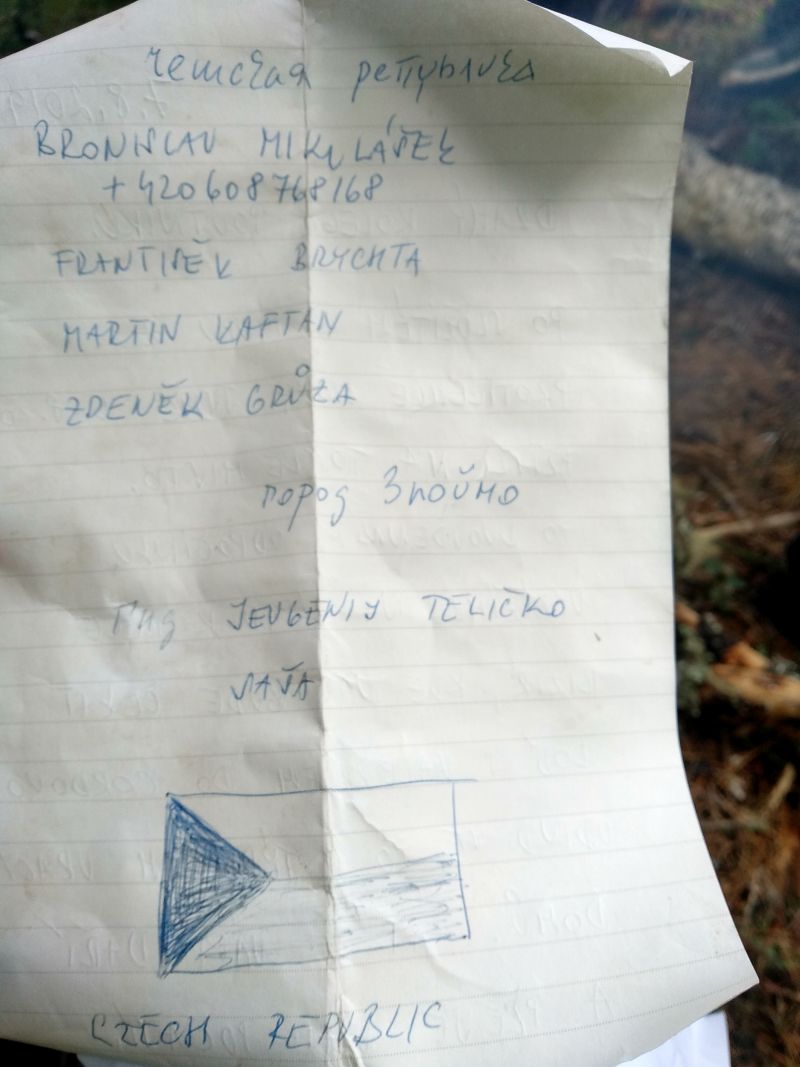 чешская република
BRONISLAV MIKULÁŠEK
+420608768168
FRANTIŠEK BRYCHTA
MARTIN KAFTAN
ZDENĚK GRŮZA
город Зноймо
Гид JEVGENIJ TELIČKO
SAŠA
CZECH REPUBLIC